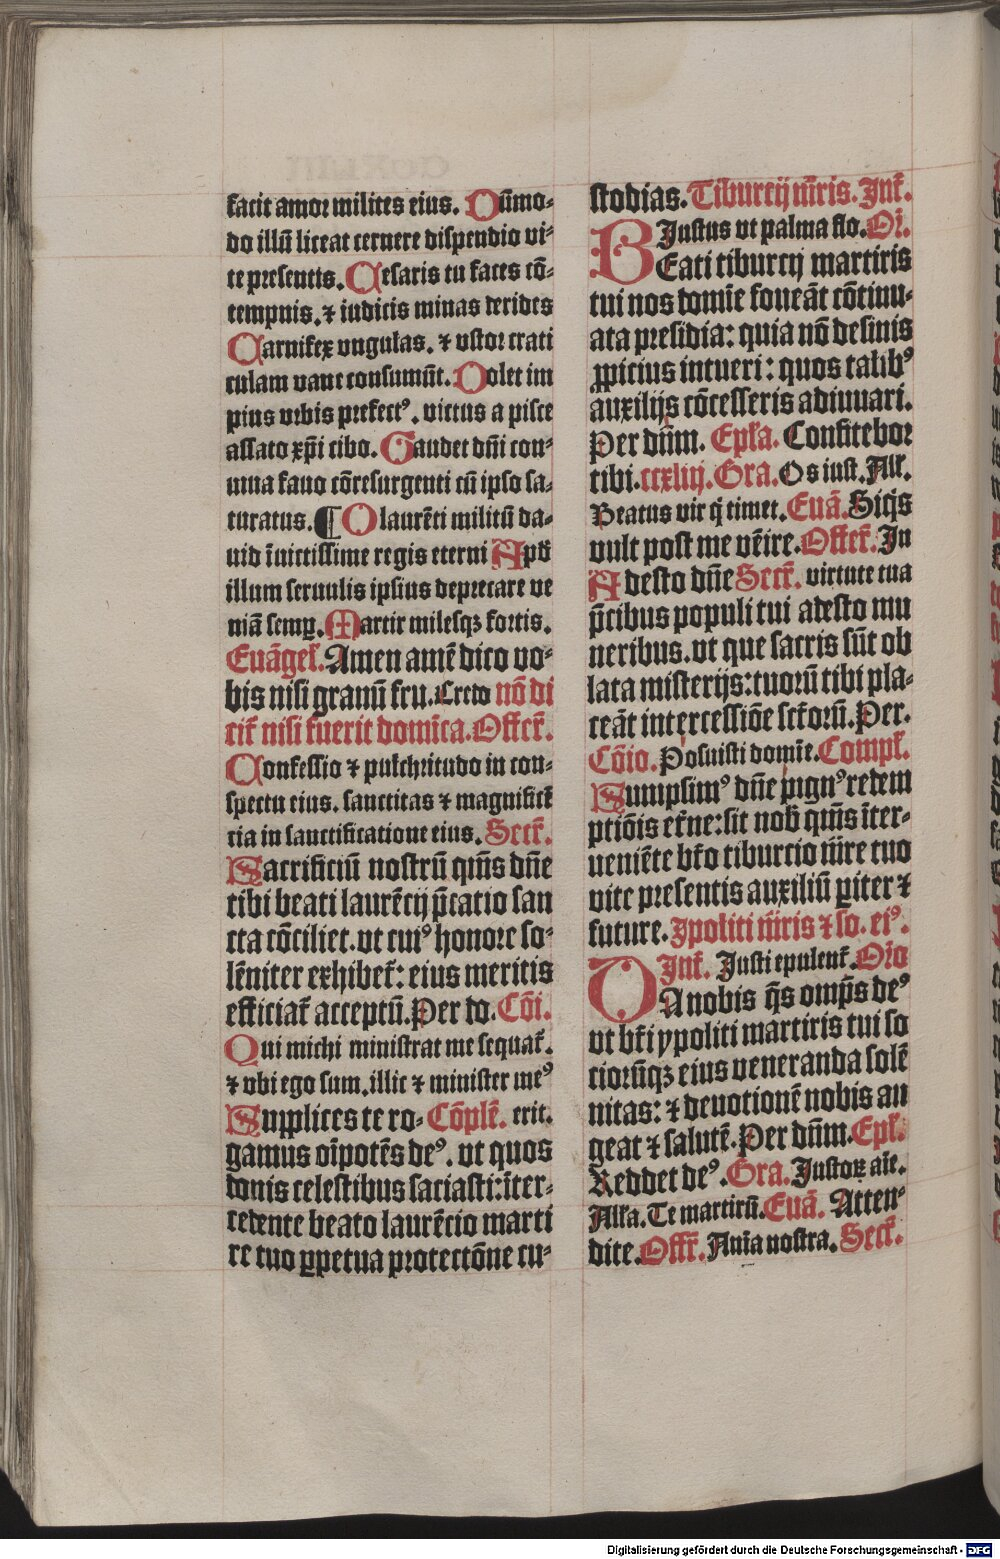 facit amor milites eius. Dūmo-
do illū liceat cernere dispendio vi-
te presentis. Cesaris tu fasces cō-
tempnis. ⁊ iudicis minas derides
Carnifex vngulas. ⁊ vstor crati
culam vane consumūt. Dolet im
pius vrbis prefectꝰ. victus a pisce
assato xp̄i cibo. Gaudet dn̄i con-
uiua fauo cōresurgenti cū ipso sa-
turatus. ¶ O laurēti militū da-
uid īuictissime regis eterni Apd̄
illum seruulis ipsius deprecare ve
niā semꝑ. Martir milesqꝫ fortis.
Euāgel̄. Amen amē dico vo-
bis nisi granū fru. Credo nō di
cit̄ nisi fuerit domīca. Offert̄.
Confessio ⁊ pulchritudo in con-
spectu eius. sanctitas ⁊ magnificē
tia in sanctificatione eius. Secr̄.
Sacrificiū nostrū qūs dn̄e
tibi beati laurēcij p̄catio san
cta cōciliet. vt cuiꝰ honore so-
lēniter exhibet̄: eius meritis
efficiat̄ acceptū. Per do. Cōi.
Qui michi ministrat me sequat̄.
⁊ vbi ego sum. illic ⁊ minister meꝰ
Supplices te ro- Cōplē. erit.
gamus oīpotēs deꝰ. vt quos
donis celestibus saciasti: īter-
cedente beato laurēcio marti
re tuo ꝑpetua protectōne cu-
stodias. Tiburcij mr̄is. Int̄.
Iustus vt palma flo. Or̄.
BEati tiburcij martiris
tui nos domīe foueāt cōtinu-
ata presidia: quia nō desinis
ꝓpicius intueri: quos talibꝰ
auxilijs cōcesseris adiuuari.
Per dn̄m. Epl̄a. Confitebor
tibi. ccxliij. Gra. Os iust. All̄.
Beatus vir q̄ timet. Euā. Siq̄s
vult post me vēire. Offert̄. In
Adesto dn̄e Secr̄. virtute tua
p̄cibus populi tui adesto mu
neribus. vt que sacris sūt ob
lata misterijs: tuorū tibi pla-
ceāt intercessiōe sct̄orū. Per.
Cōio. Posuisti domīe. Compl̄.
Sumpsimꝰ dn̄e pignꝰ redem
ptiōis et̄ne: sit nob̄ qūs īter-
ueniēte bt̄o tiburcio mr̄e tuo
vite presentis auxiliū ꝑiter ⁊
future. Ipoliti mr̄is ⁊ so. eiꝰ.
Int̄. Iusti epulent̄. Or̄o
DA nobis q̄s omp̄s deꝰ
vt bt̄i ypoliti martiris tui so
ciorūqꝫ eius veneranda solē
nitas: ⁊ deuotionē nobis au
geat ⁊ salutē. Per dn̄m. Epl̄.
Reddet deꝰ. Gra. Iustoꝝ aīe.
All̄a. Te martirū. Euā. Atten-
dite. Offr̄. Anīa nostra. Secr̄.
Digitalisierung gefördert durch die Deutsche Forschungsgemeinschaft - DFG